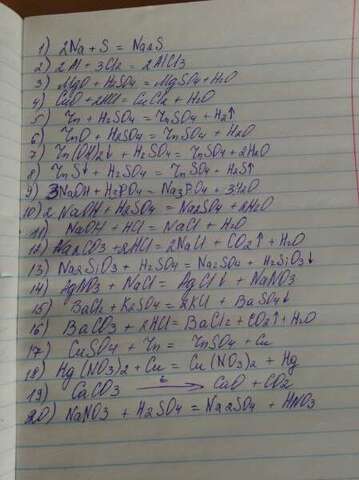 1) 2Na + S = Na2S
2) 2Al + 3Cl2 = 2AlCl3
3) MgO + H2SO4 = MgSO4 + H2O
4) CuO + 2HCl = CuCl2 + H2O
5) Zn + H2SO4 = ZnSO4 + H2↑
6) ZnO + H2SO4 = ZnSO4 + H2O
7) Zn(OH)2↓ + H2SO4 = ZnSO4 + 2H2O
8) ZnS↓ + H2SO4 = ZnSO4 + H2S↑
9) 3NaOH + H3PO4 = Na3PO4 + 3H2O
10) 2NaOH + H2SO4 = Na2SO4 + 2H2O
11) NaOH + HCl = NaCl + H2O
12) Na2CO3 + 2HCl = 2NaCl + CO2↑ + H2O
13) Na2SiO3 + H2SO4 = Na2SO4 + H2SiO3↓
14) AgNO3 + NaCl = AgCl↓ + NaNO3
15) BaCl2 + K2SO4 = 2KCl + BaSO4↓
16) BaCO3 + 2HCl = BaCl2 + CO2↑ + H2O
17) CuSO4 + Zn = ZnSO4 + Cu
18) Hg(NO3)2 + Cu = Cu(NO3)2 + Hg
19) CaCO3 t→ CaO + CO2
20) NaNO3 + H2SO4 = Na2SO4 + HNO3